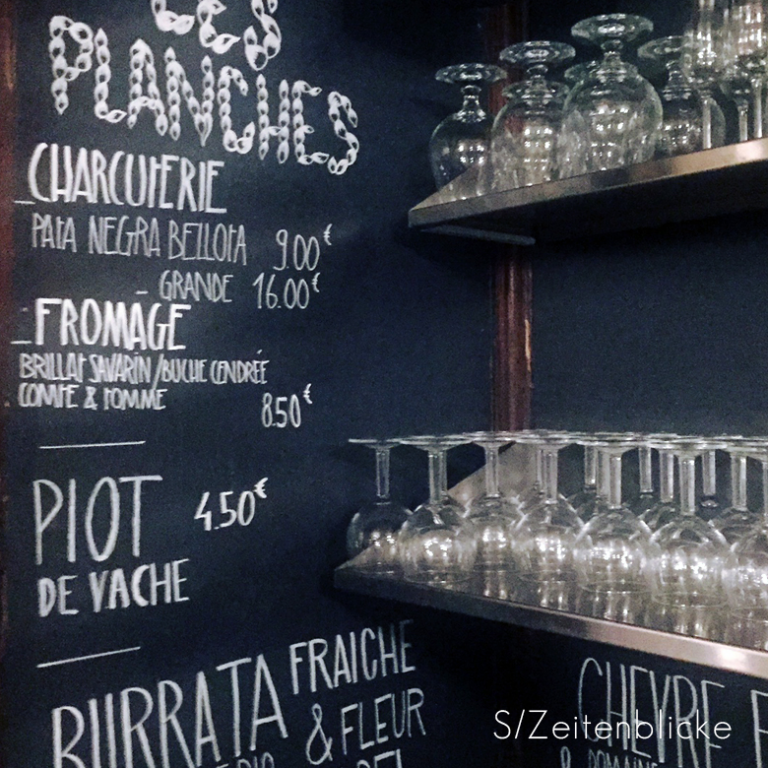 LES
PLANCHES
CHARCUTERIE
PATA NEGRA BELLOTA 9.00€
- GRANDE 16.00€
FROMAGE
BRILLAT SAVARIN/BUCHE CENDRÉE
COMTE & TOMME 8.50€
PIOT 4.50€
DE VACHE
BURRATA FRAICHE
& FLEUR
CHEVRE
S/Zeitenblicke